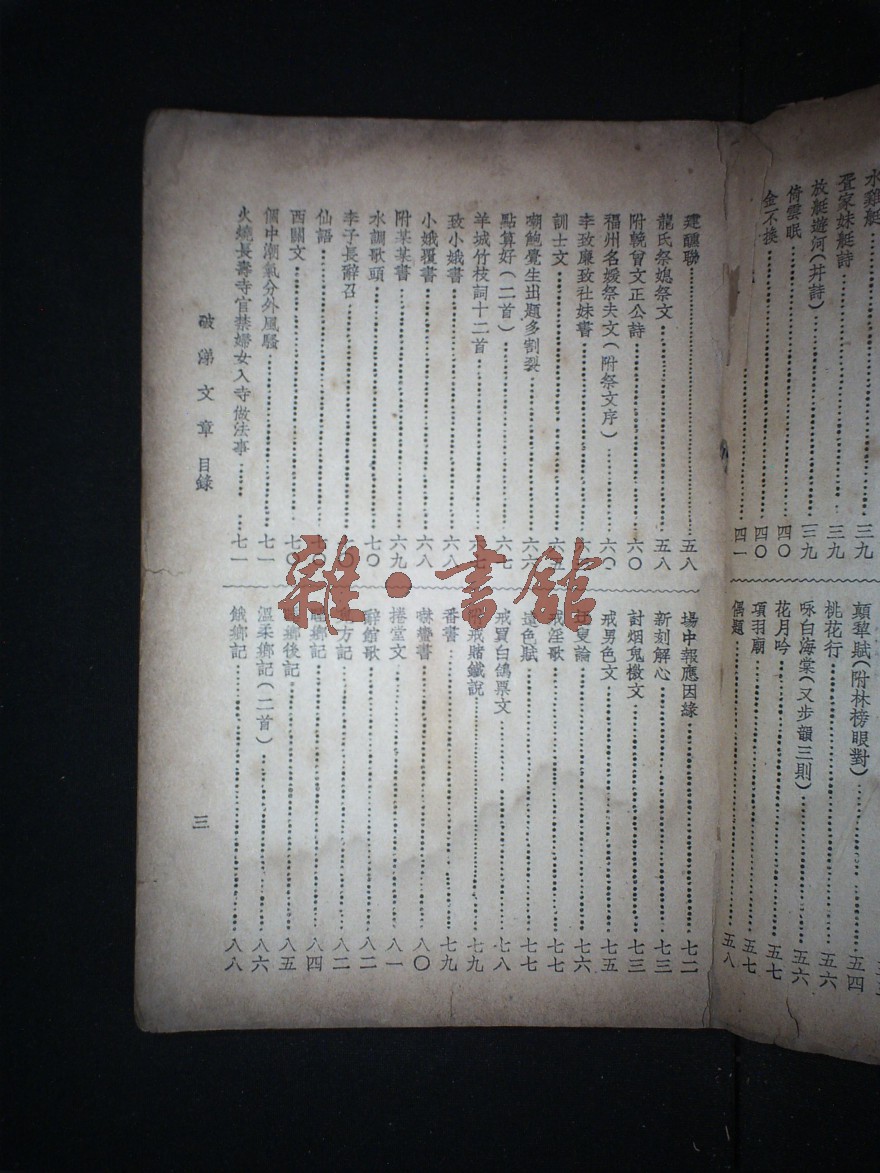 水雞艇……三九
疍家妹艇詩……三九
放艇遊河(幷詩)……三九
倚雲眠……四〇
金不換……四〇
……四一
顛犂賦(附林榜眼對)……五四
桃花行……五六
咏白海棠(又步韻三則)……五六
花月吟……五七
項羽廟……五七
偶題……五八
建醮聯……五八
龍氏祭媳祭文……五八
附輓曾文正公詩……六〇
福州名媛祭夫文(附祭文序)……六〇
李致廉致社妹書……六
訓士文……六五
嘲鮑覺生出題多割裂……六六
點算好(二首)……六七
羊城竹枝詞十二首……六七
致小娥書……六八
小娥覆書……六八
附某某書……六九
水調歌頭……七〇
李子長辭召……〇
仙語……〇
西關文……七〇
個中潮氣分外風騷……七一
火燒長壽寺官禁婦女入寺做法事……七一
場中報應因緣……七二
新刻解心……七三
討烟鬼檄文……七三
戒男色文……七五
論……七六
戒淫歌……七七
遠色賦……七七
戒買白鴿票文……七八
戒賭鐵說……七九
番書……七九
書……八〇
捲堂文……八一
辭館歌……八二
方記……八二
鄉記……八四
鄉後記……八五
溫柔鄉記(二首)……八六
餓鄉記……八八
破涕文章 目錄
三
雜·書館